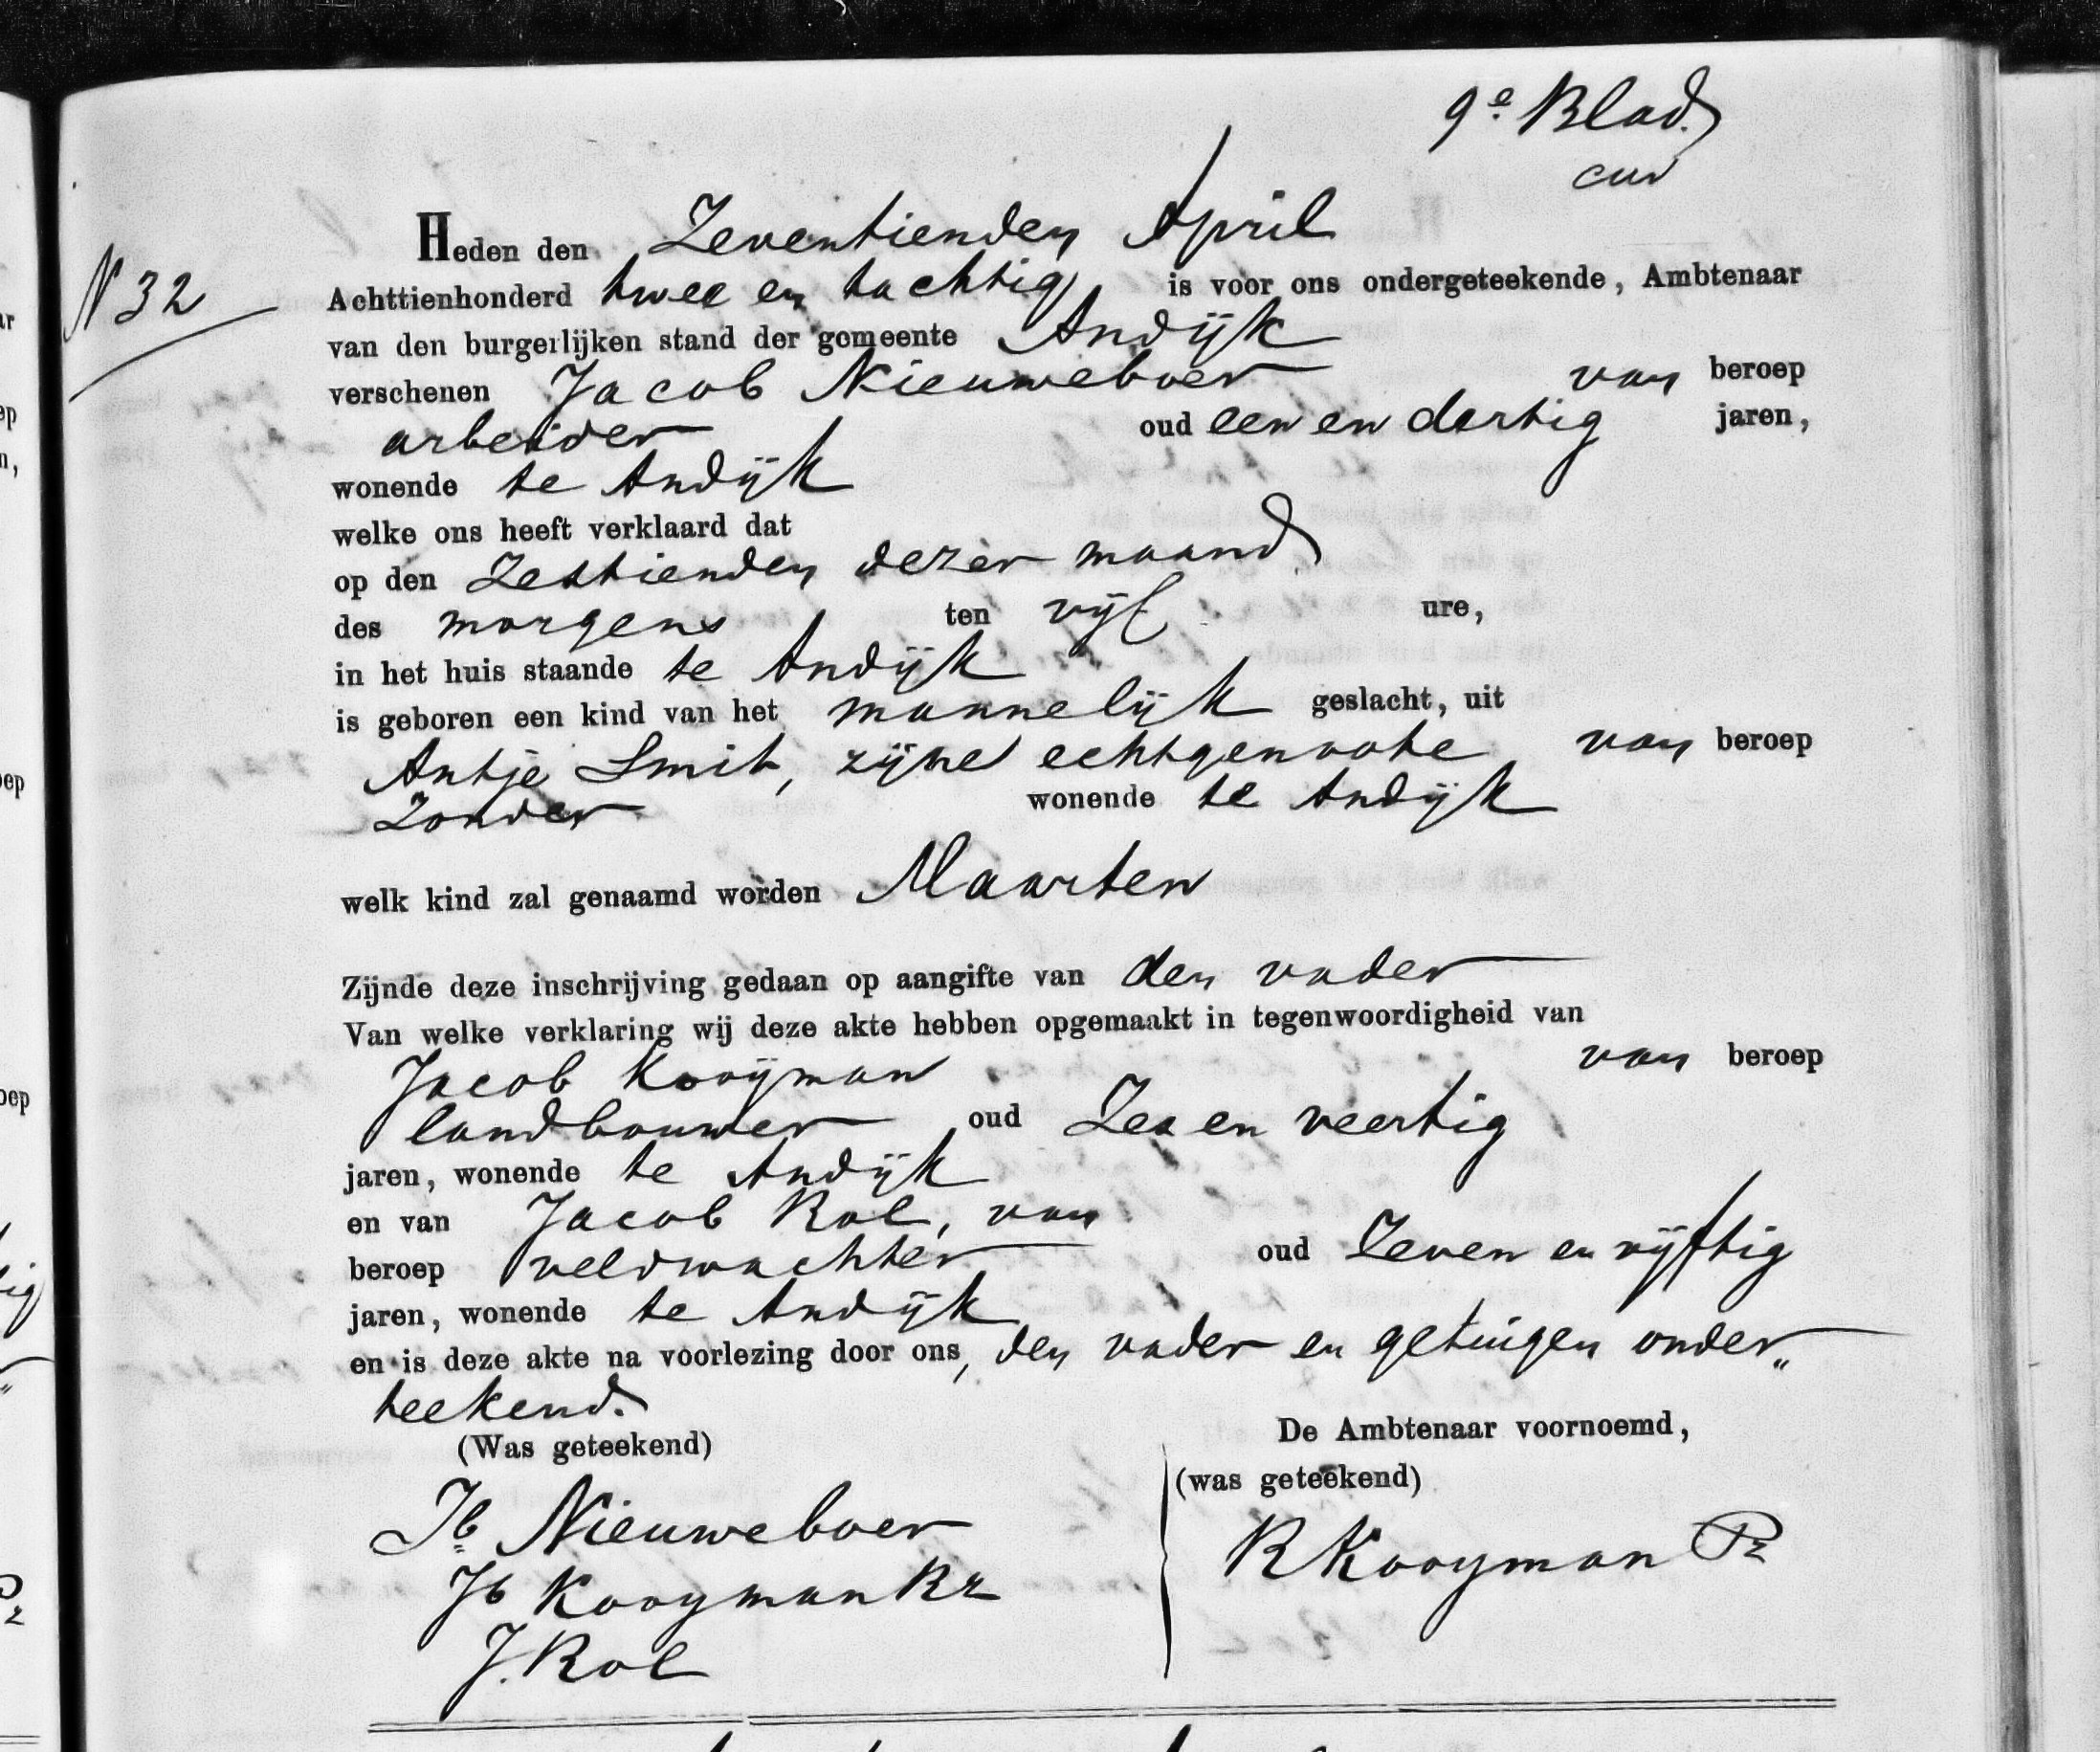 9e Blad.
N 32
Heden den Zeventienden April
Achttienhonderd twee en tachtig is voor ons ondergeteekende, Ambtenaar
van den burgerlijken stand der gemeente Andijk
verschenen Jacob Nieuweboer van beroep
arbeider oud een en dertig jaren,
wonende te Andijk
welke ons heeft verklaard dat
op den Zestienden dezer maand
des morgens ten vijf ure,
in het huis staande te Andijk
is geboren een kind van het mannelijk geslacht, uit
Antje Smit, zijne echtgenoote van beroep
Zonder wonende te Andijk
welk kind zal genaamd worden Maarten
Zijnde deze inschrijving gedaan op aangifte van den vader
Van welke verklaring wij deze akte hebben opgemaakt in tegenwoordigheid van
Jacob Kooijman van beroep
landbouwer oud Zes en veertig
jaren, wonende te Andijk
en van Jacob Rol, van
beroep veldwachter oud Zeven en vijftig
jaren, wonende te Andijk
en is deze akte na voorlezing door ons, den vader en getuigen onder„
teekend.
(Was geteekend) De Ambtenaar voornoemd,
(was geteekend)
Jb Nieuweboer
R Kooyman Pz
Jb Kooyman Rz
J. Rol